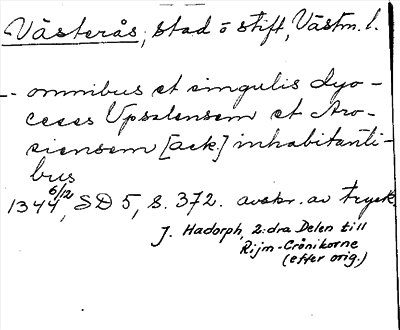 Västerås, stad o stift, Västm. l.
-- omnibus et singulis dyo-
ceses Upsalensem et Aro-
siensem [ack.] inhabitanti-
bus
1344 6/12, SD 5, s. 372. avskr. av tryck
J. Hadorph, 2:dra Delen till
Rijm-Crönikorne
(efter orig.)